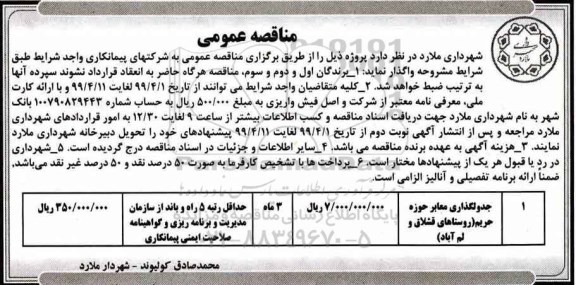 مناقصه عمومی
شهرداری ملارد در نظر دارد پروژه ذیل را از طریق برگزاری مناقصه عمومی به شرکتهای پیمانکاری واجد شرایط طبق
شرایط مشروحه واگذار نماید: ۱_برندگان اول و دوم و سوم، مناقصه هرگاه حاضر به انعقاد قرارداد نشوند سپرده آنها
به ترتیب ضبط خواهد شد. ۲_کلیه متقاضیان واجد شرایط می توانند از تاریخ ۹۹/۴/۱ لغایت ۹۹/۴/۱۱ و با ارائه کارت
ملی، معرفی نامه معتبر از شرکت و اصل فیش واریزی به مبلغ ۵۰۰/۰۰۰ ریال به حساب شماره ۱۰۰۷۹۰۸۲۹۴۴۳ بانک
شهر به نام شهرداری ملارد جهت دریافت اسناد مناقصه و کسب اطلاعات بیشتر از ساعت ۹ لغایت ۱۲/۳۰ به امور قراردادهای شهرداری
ملارد مراجعه و پس از انتشار آگهی نوبت دوم از تاریخ ۹۹/۴/۱ لغایت ۹۹/۴/۱۱ پیشنهادهای خود را تحویل دبیرخانه شهرداری ملارد
نمایند. ۳_هزینه آگهی به عهده برنده مناقصه می باشد. ۴_سایر اطلاعات و جزئیات در اسناد مناقصه درج گردیده است. ۵_شهرداری
در رد یا قبول هر یک از پیشنهادها مختار است. ۶_پرداخت ها با تشخیص کارفرما به صورت ۵۰ درصد نقد و ۵۰ درصد غیر نقد می‌باشد.
ضمنا ارائه برنامه تفصیلی و آنالیز الزامی است.
۱ جدولگذاری معابر حوزه ۷/۰۰۰/۰۰۰/۰۰۰ ریال ۳ ماه حداقل رتبه ۵ راه و باند از سازمان ۳۵۰/۰۰۰/۰۰۰ ریال
حریم(روستاهای قشلاق و مدیریت و برنامه ریزی و گواهینامه
لم آباد) صلاحیت ایمنی پیمانکاری
محمدصادق کولیوند - شهردار ملارد
۰۲۱-۸۸۳۴۹۶۷۰-۵